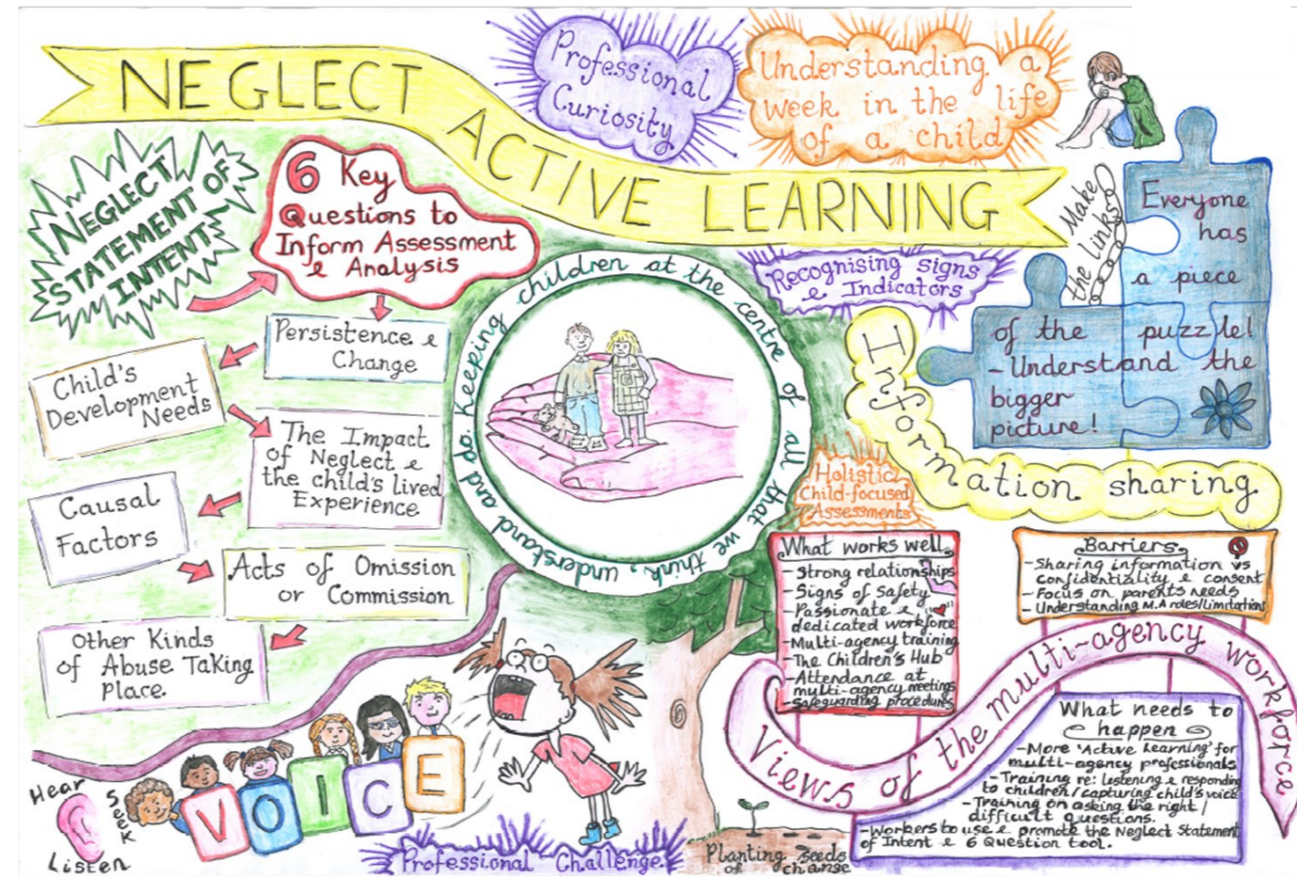 NEGLECT ACTIVE LEARNING
Professional
Curiosity
Understanding a
week in the life
of a child
NEGLECT
STATEMENT OF
INTENT
6 Key
Questions to
Inform Assessment
& Analysis
Persistence &
Change
Child's
Development
Needs
The Impact
of Neglect &
the child's lived
Experience
Causal
Factors
Acts of Omission
or Commission
Other Kinds
of Abuse Taking
Place.
Keeping children at the centre of all that we think, understand and do.
Recognising signs
& Indicators
Make
the links
Everyone
has
a piece
of the puzzle!
- Understand the
bigger
picture!
Information sharing
Holistic
Child-focused
Assessments
What works well
- Strong relationships
- Signs of Safety
- Passionate &
dedicated workforce
- Multi-agency training
- The Children's Hub
- Attendance at
multi-agency meetings
- Safeguarding procedures
Barriers
- Sharing information vs
confidentiality & consent
- Focus on parents needs
- Understanding M.A roles/limitations
Views of the multi-agency workforce
What needs to
happen
- More 'Active Learning' for
multi-agency professionals
- Training re: listening & responding
to children/capturing child's voice
- Training on asking the right/
difficult questions.
- Workers to use & promote the Neglect Statement
of Intent & 6 Question tool.
Hear
Seek
Listen
VOICE
Professional Challenge.
Planting seeds
of change